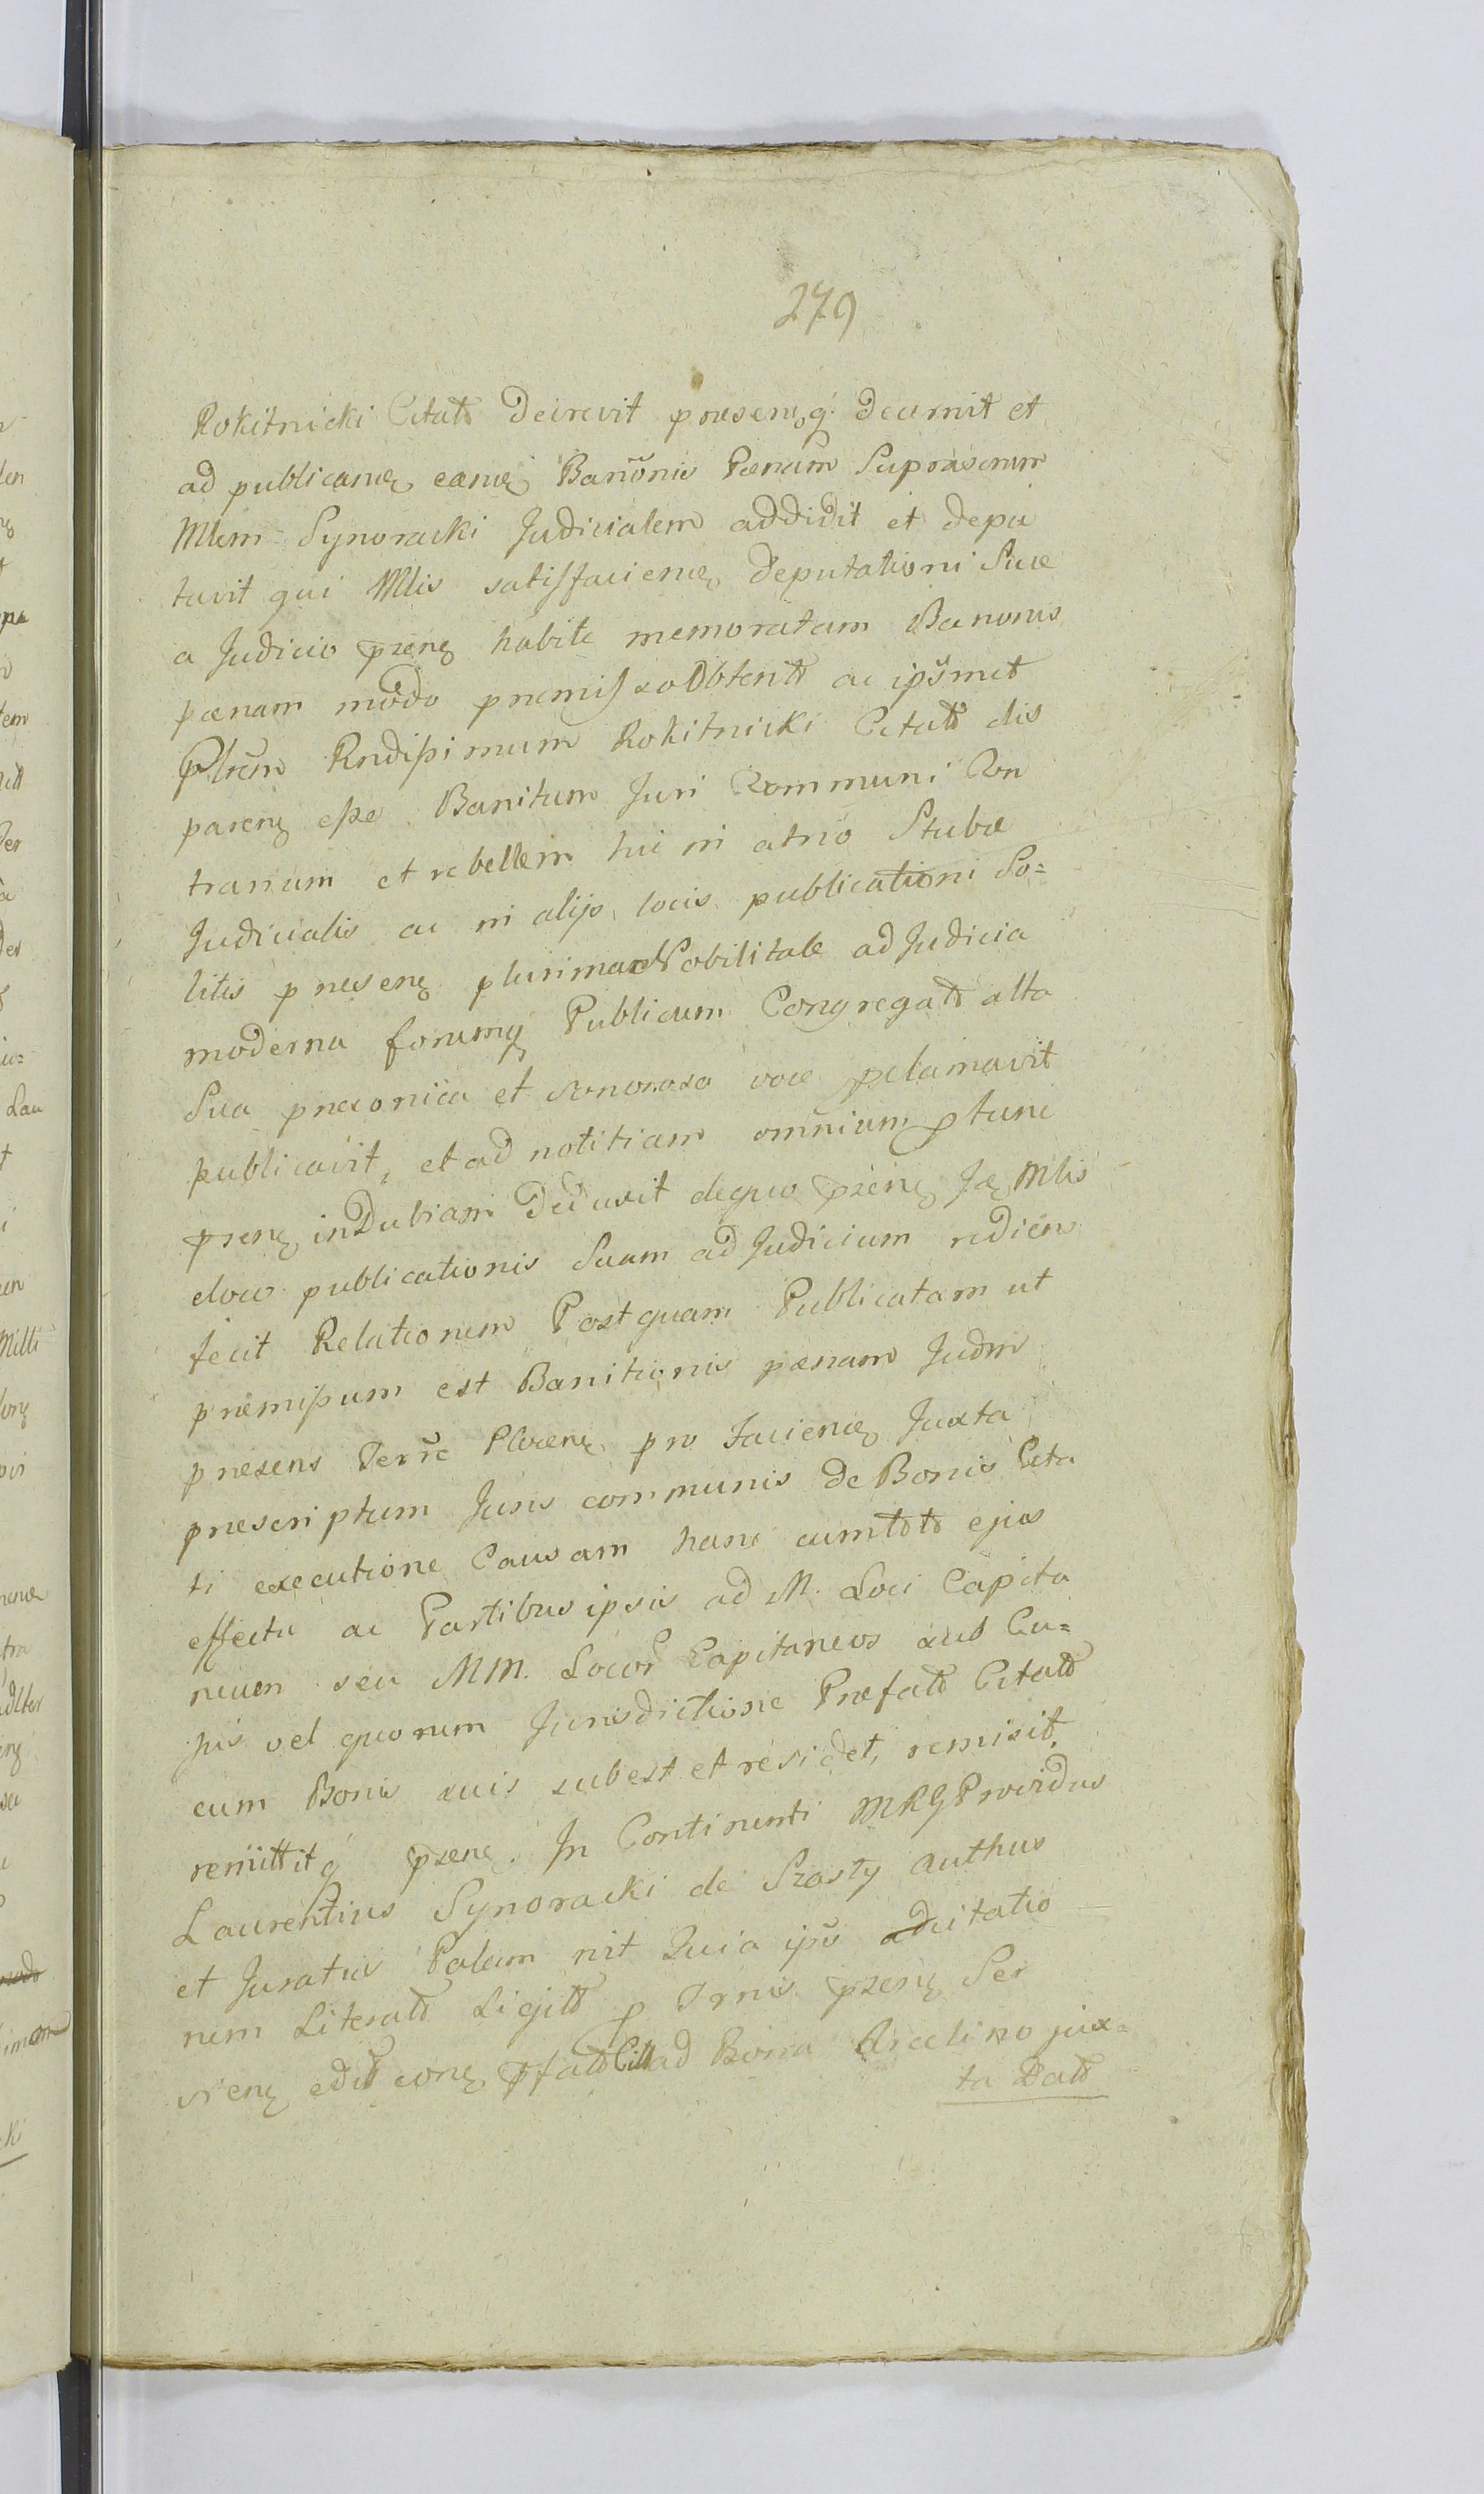 279
Rokitnicki Citatt Decrevit præsenq. Decernit et
ad publicanę eanę Bañonis Pænam Suprascrum
Mlem Synoracki Judicialem addidit et depu
tavit qui Mlis satisfacienę deputationi Suæ
a Judicio pzenę habite memoratam Banonis
pænam modo præmisso Obtentt ac ipsmet
Rndissimum Rokitnicki Citatt dis
parenę esse Banitum Juri Communi Con
trarium et rebellem hic in atrio Stubæ
Judicialis ac in alijs locis publicationi So=
litis præsenę plurimaæ Nobilitate ad Judicia
moderna forumq Publicum Congregatt alta
Sua præconica et sonorosa voce pclamavit
publicavit, et ad notitiam omnium ptunc
pzenę inDubiam Deduxit dequo pzenę Mlis
eloco publicationis Suam ad Judicium redien
fecit Relationem Postquam Publicatam ut
præmissum est Banitionis pænam Judm
præsens Terre Plocenę pro facienę Juxta
præscriptum Juris communis de Bonis Cita
ti executione Causam hanc cumtott ejus
effectu ac Partibus ipsis ad M. Loci Capita
neum seu MM. Locor Capitaneos sub Cu=
jus vel quorum Jurisdictione Præfatt Citatt
cum Bonis suis subest et residet, remisit,
remittitq pzenę. In Continenti MRG Providus
Laurentius Synoracki de Szasty authus
et Juratus Palam rit Quia ips adcitatio
nem Literatt Ligitt p Trnis pzenę Ser
vienę edit conę pfatt Citt ad Bona Arcelino jux=
ta Datt